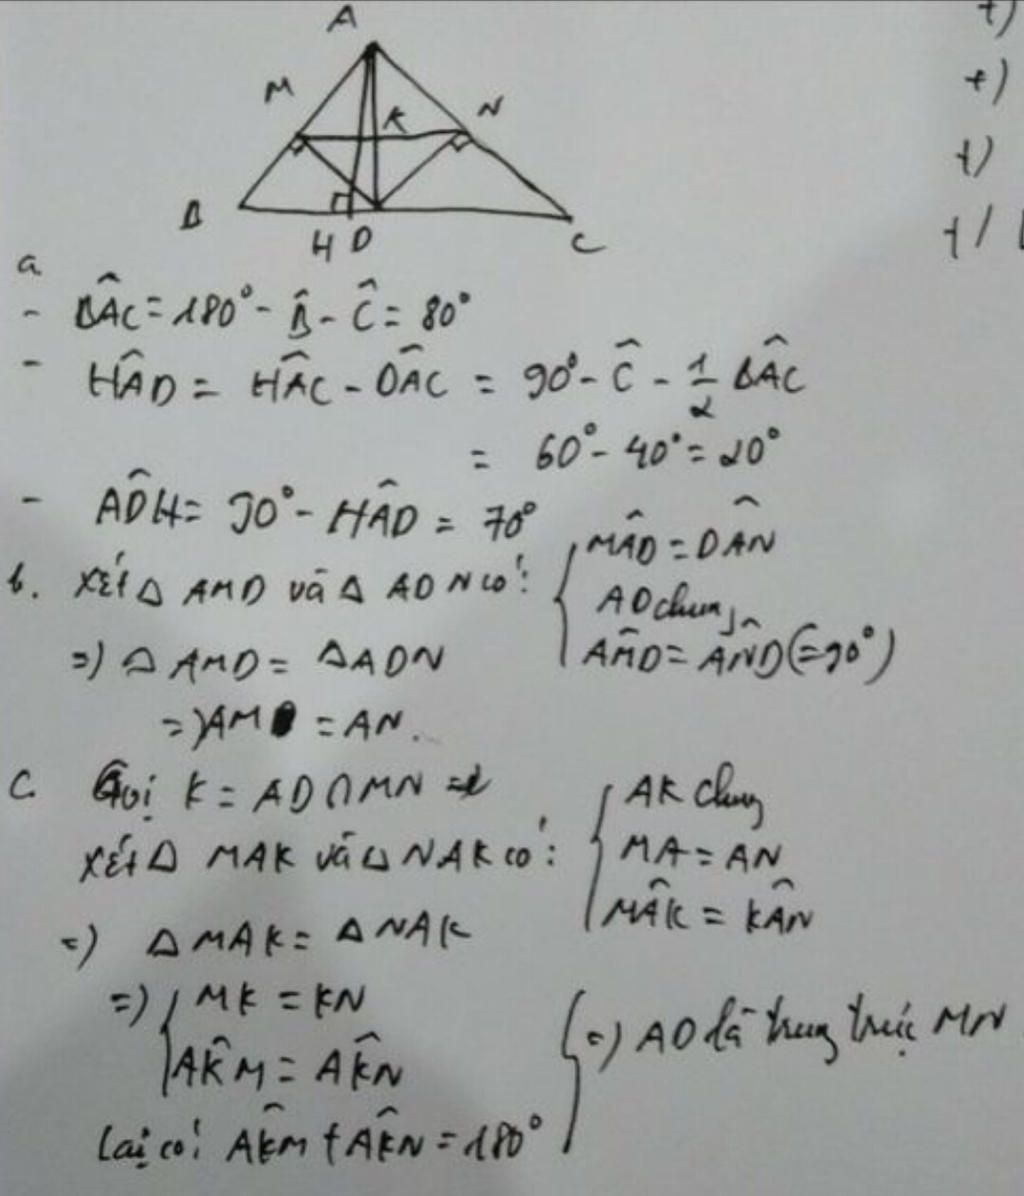 A
M
K
N
B
H D
C
+)
+)
+)
+/
a
- BÂC = 180° - B̂ - Ĉ = 80°
- HÂD = HÂC - DÂC = 90° - Ĉ - 1/2 BÂC
= 60° - 40° = 20°
- AD̂H = 90° - HÂD = 70°
b. Xét Δ AMD và Δ ADN có: { MÂD = DÂN
AD chung
AM̂D = AN̂D (= 90°)
=) Δ AMD = ΔADN
=) AM = AN.
c. Gọi K = AD ∩ MN
Xét Δ MAK và Δ NAK có: { AK chung
MA = AN
MÂK = KÂN
=) Δ MAK = Δ NAK
=) { MK = KN
AK̂M = AK̂N
Lại có: AK̂M + AK̂N = 180° } =) AD là trung trực MN